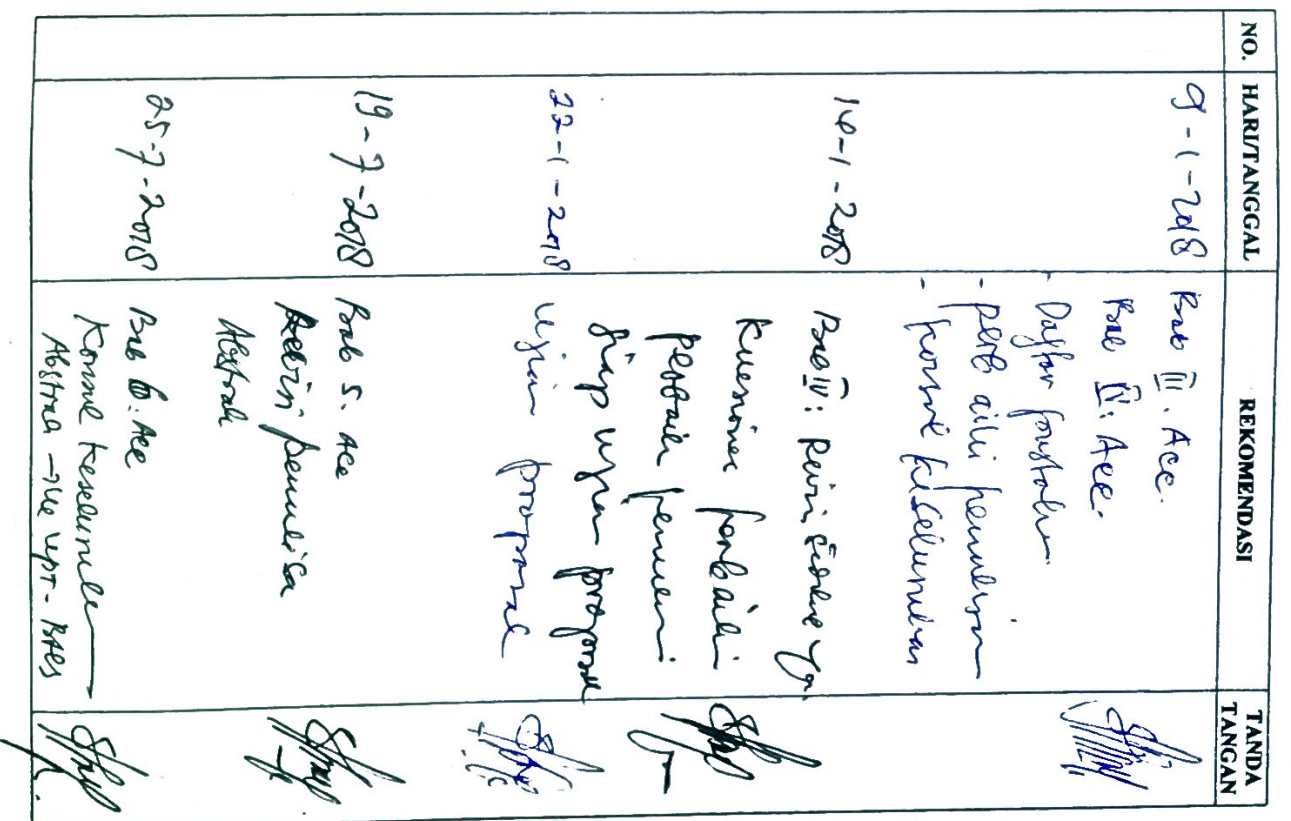 NO. HARI/TANGGAL REKOMENDASI TANDA TANGAN
9-1-2018 Bab III. Acc.
Bab IV: Acc.
- Daftar
- perbaiki penulisan
- konsul keseluruhan
16-1-2018 Bab IV: Revisi
Kuesioner perbaiki
perbaiki
Siap ujian proposal
22-1-2018 ujian proposal
19-7-2018 Bab 5. Acc
Revisi penulisan
Abstrak
25-7-2018 Bab 6. Acc
Konsul keseluruhan
Abstrak → ke UPT-